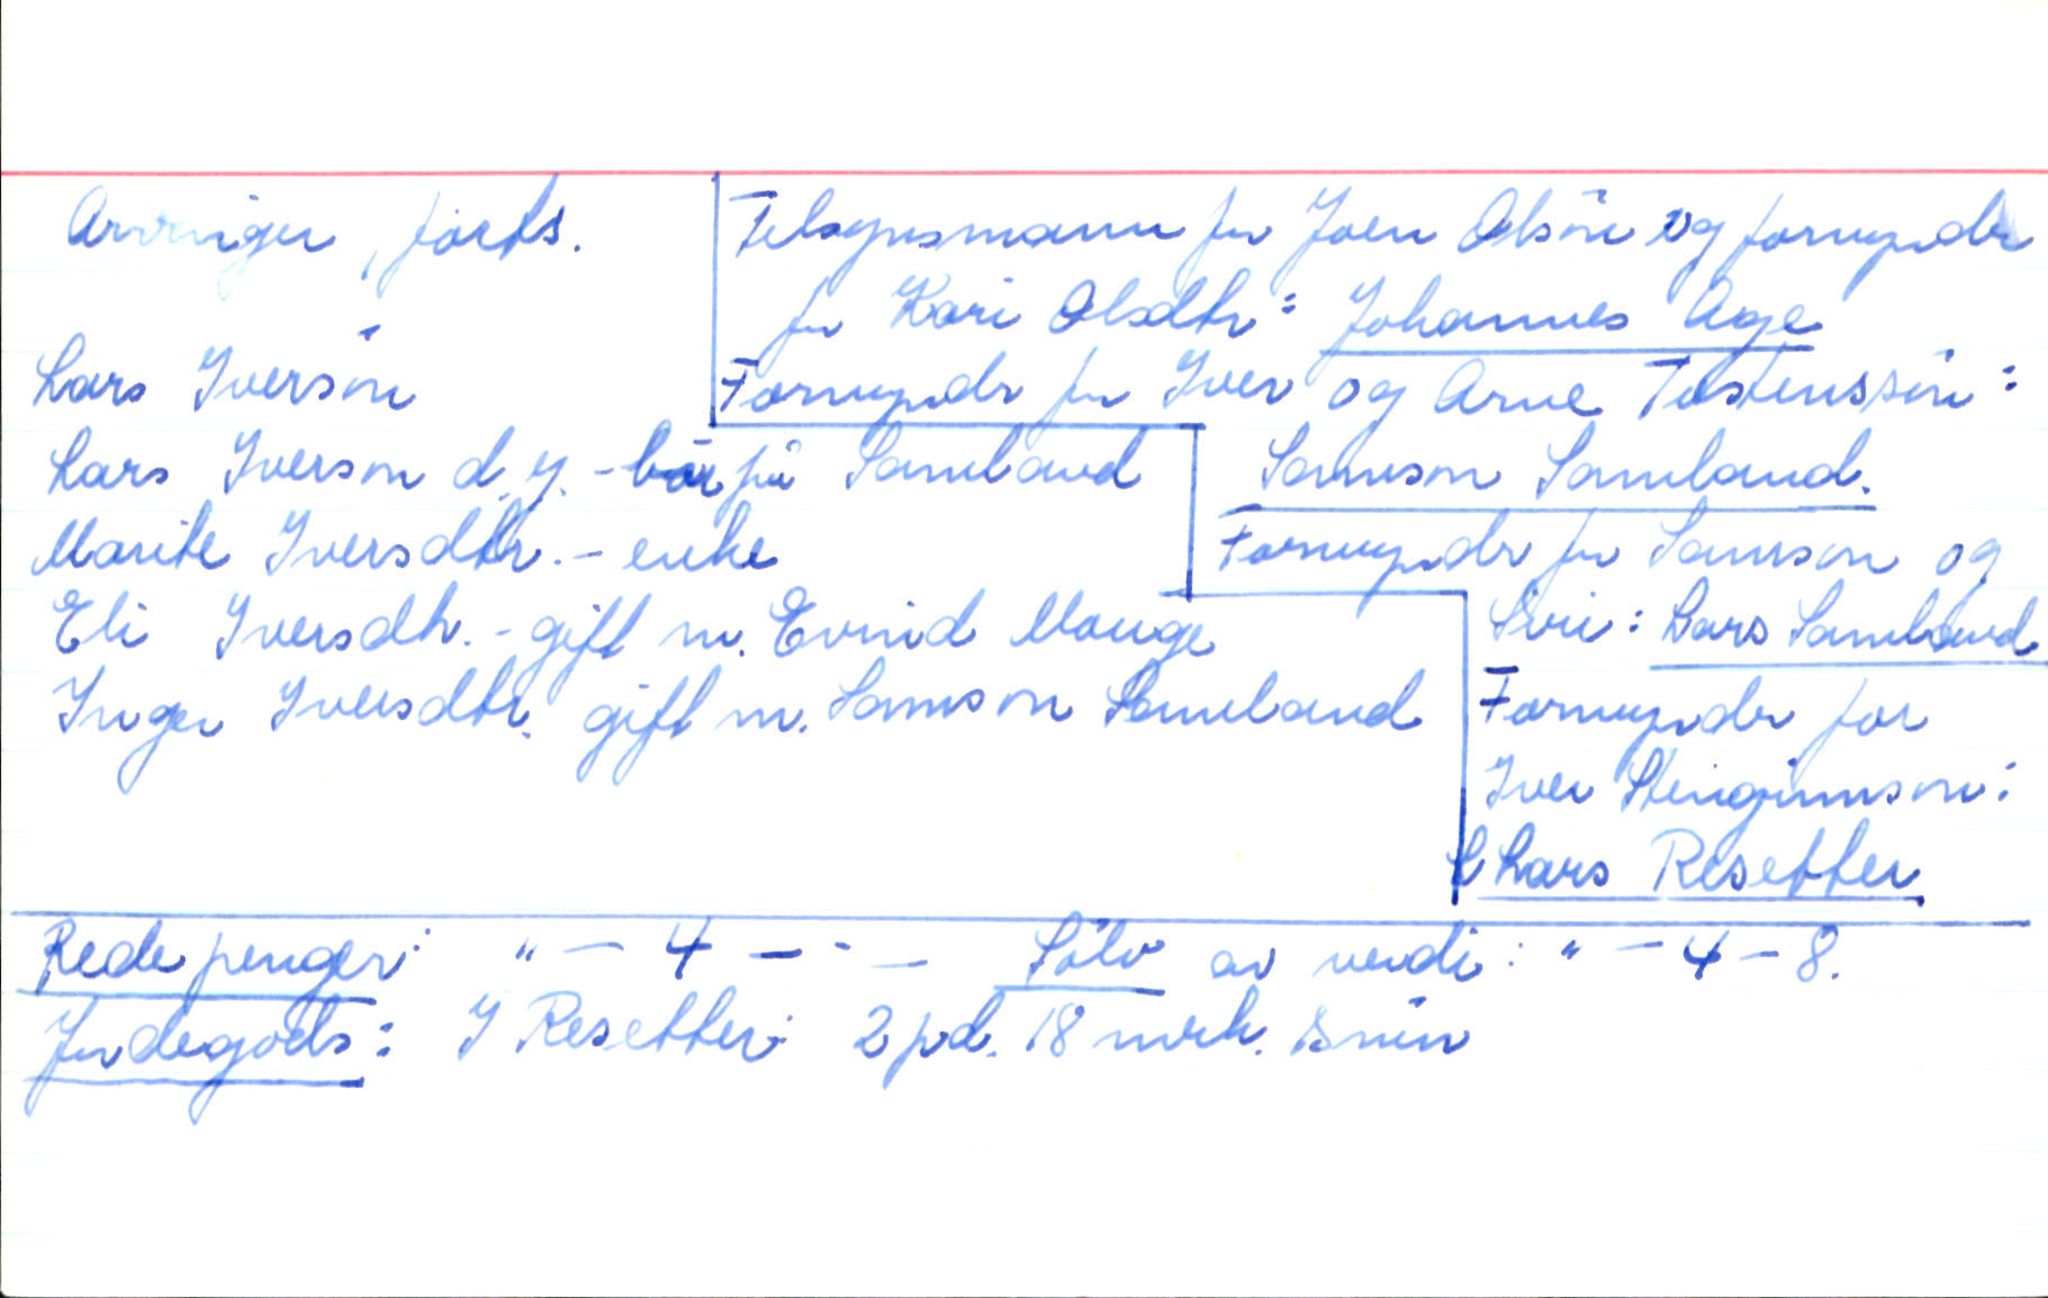 Arvinger, forts.
Lars Iversön
Lars Iverson d.y. - bor på Samland
Marite Iversdtr. - enke
Eli Iversdtr. - gift m. Evind Mauge
Inger Iversdtr. gift m. Samson Samland
Tilsynsmann for Joen Olsön og formyndr
for Kari Olsdtr: Johannes Age
Formyndr for Iver og Arne Tostenssön:
Samson Samland.
Formyndr for Samson og
Siri: Lars Samland
Formyndr for
Iver Steingrimson:
Lars Resetter
Rede penger: " - 4 - " - Sölv av verdi: " - 4 - 8.
Jordegods: I Resetter: 2 pd. 18 mrk. Smör